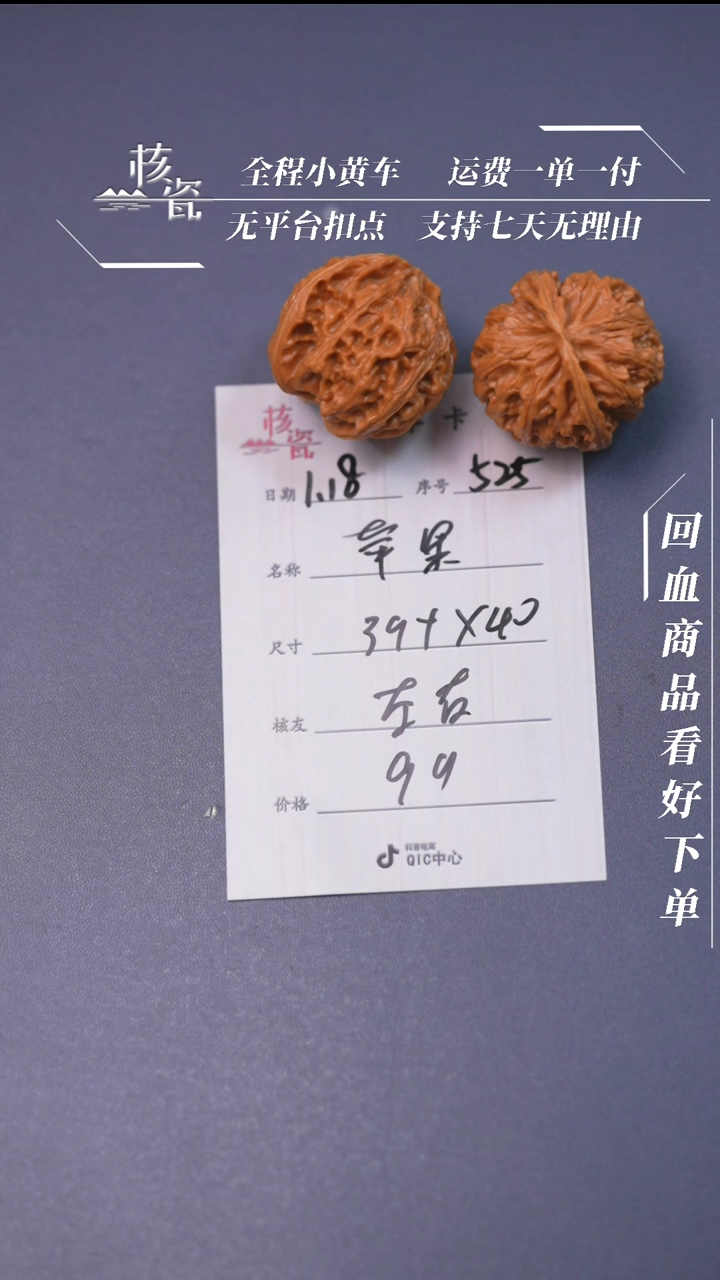 核瓷
全程小黄车 运费一单一付
无平台扣点 支持七天无理由
核瓷 卡
日期 1.18 序号 525
名称 苹果
尺寸 39+×40
核友 左右
价格 99
抖音电商
QIC中心
回血商品看好下单